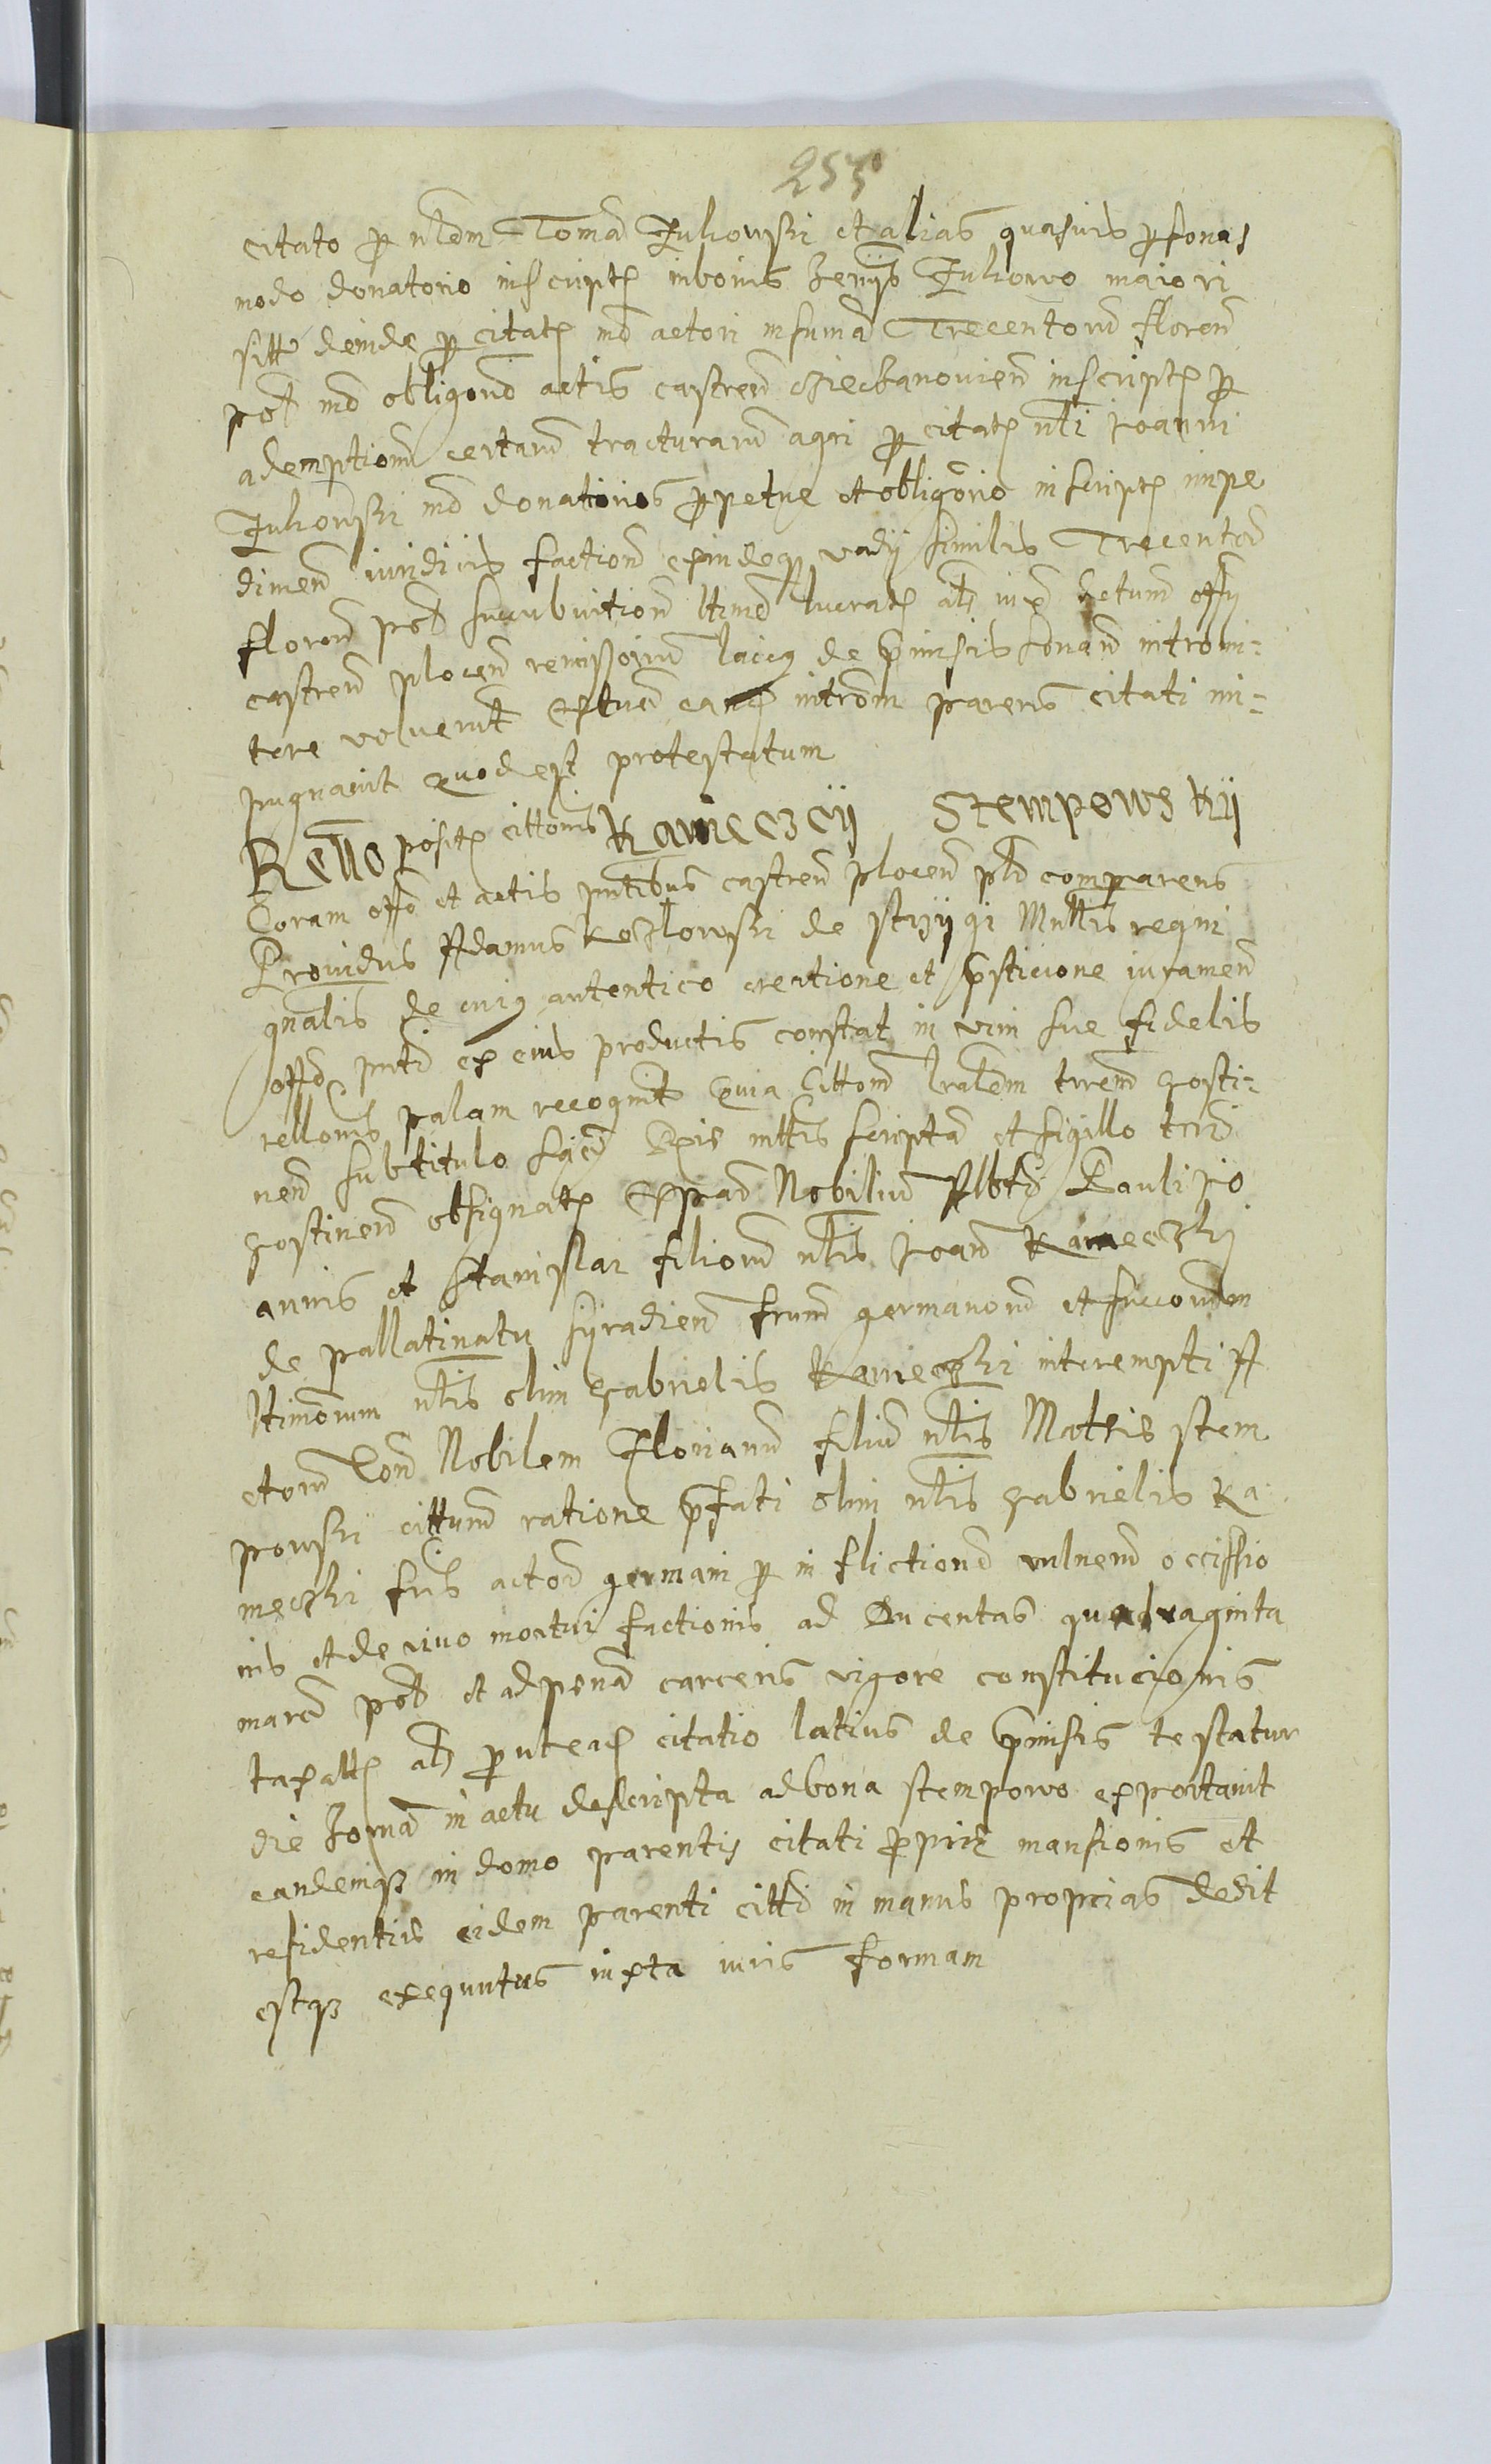 253
citato p nlem Toma Zukowski et alias quasvis psonas
modo donatorio inscript in bonis Zukowo maiori
sitt deinde p citat mo actori in suma Trecentoru floren
pol mo obligono actis castren Cziechanouien inscript p
ademptione certaru tracturaru agri p citat nli Joanni
Zukowski mo donatorio ppetue et obligorio inscript impe
dimen iuridicis faction exindeq vadij similis Trecentoru
floren pol succubuition ltime lucrat alt actum offij
castren plocen remissoium laicq de pmissis intromi-
tere voluerit introm parens citati im-
pugnavit quod est protestatum
Rello posit cittonis Kamieczcij Stempowskij
Coram offo et actis pntibus castren plocen psl comparens
Providus Adamus Kozlowski de mnltis regni
gnalis de cuiq autentico creatione et psticione iuramen
offo pnti ex eius productis constat in vim sue fidelis
rellonis palam recognit quia cittom lralem trem gosti-
nen sub titulo Sac Rgis mttis scripta et sigillo tri
gostinen obsignat Nobiliu Albti Pauli Jo
annis et Stanislai filioru nlis Joan Kamieczki
de pallatinatu syradien fratru germanoru et succorum
ltimorum nlis olim Gabrielis Kamieczki interempti A
ctoru Con Nobilem Florianu filiu nlis Mathis Stem
powski cittum ratione pfati olim nlis Gabrielis Ka
meczki fris actoru germani p in flictione vulneru occissio
nis et de vivo mortui factionis ad Ducentas quadraginta
marc pol et ad pena carceris vigore constitucionis
taxatt alt put ea citatio latius de pmissis testatur
die in actu descripta ad bona Stempowo exportavit
eandemq in domo parentis citati pprie mansionis et
residentiis eidem parenti citti in manus proprias dedit
estq exequutus iuxta iuris formam